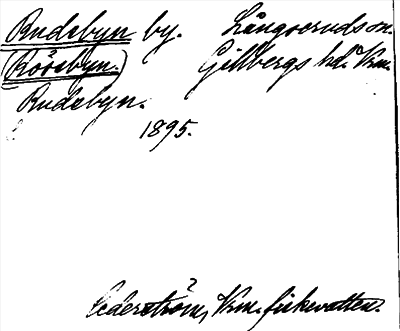 Rudsbyn by. Långseruds sn.
(Rösebyn.) Gillbergs hd. Vrm.
Rudsbyn.
1895.
Cederström, Vrm. fiskevatten.